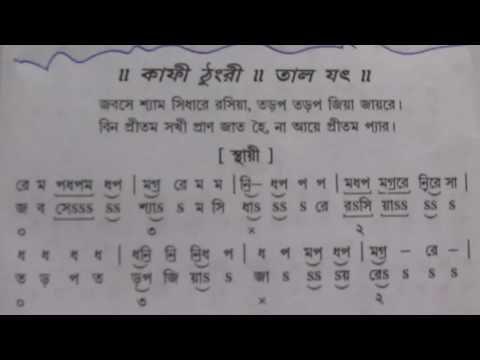 ॥ কাফী ঠুংরী ॥ তাল যৎ ॥
জবসে শ্যাম সিধারে রসিয়া, তড়প তড়প জিয়া জায়রে।
বিন প্রীতম সখী প্রাণ জাত হৈ, না আয়ে প্রীতম প্যার।
[ স্থায়ী ]
রে ম পধপম ধপ | মগু রে ম ম | নি– ধপ প প | মধপ মগুরে নিরে সা |
জ ব সেssss ss | শ্যাs s ম সি | ধাs ss s রে | রsসি য়াsss ss s |
০ ৩ × ২
ধ ধ ধ ধ | ধনি নি নিধ প | ধ প মপ ধপ | মগু – রে – |
ত ড় প ত | ড়প জি য়াs s | জা s ss sয় | রেs s s s |
০ ৩ × ২